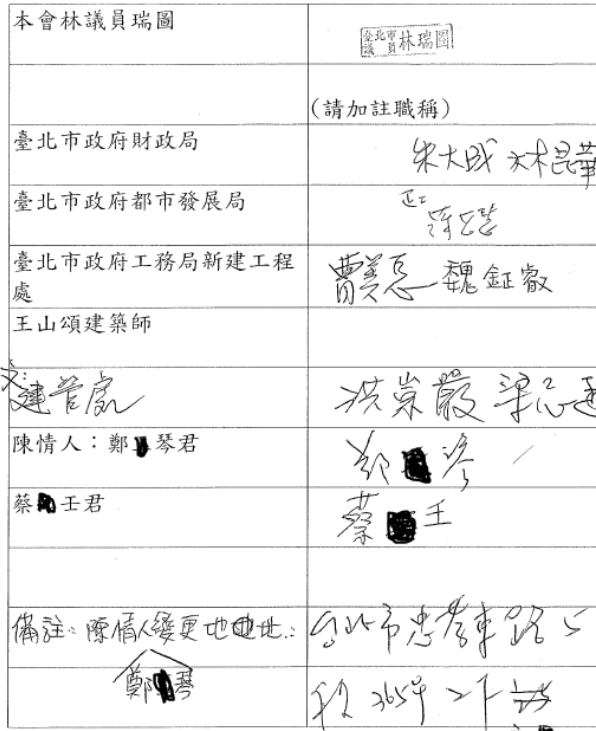 本會林議員瑞圖
臺北市議員 林瑞圖
(請加註職稱)
臺北市政府財政局
朱大成 林昆華
臺北市政府都市發展局
臺北市政府工務局新建工程
處
曹美惠 魏鉦叡
王山頌建築師
建管處
洪崇嚴 梁志遠
陳情人：鄭 琴君
鄭 琴
蔡 壬君
蔡 壬
備註：陳情人變更地址：
台北市忠孝東路5
鄭 琴
段365號